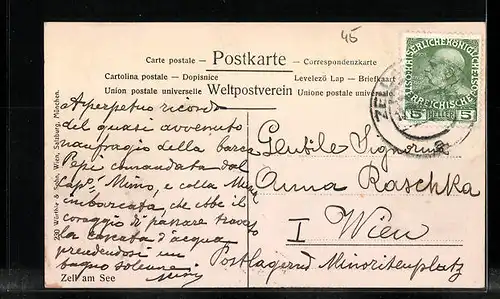 45
Carte postale – Postkarte – Correspondenzkarte
Cartolina postale – Dopisnice
Levelező Lap – Briefkaart
Union postale universelle Weltpostverein Unione postale universale
KAISERLICHE KÖNIGLICHE ÖSTERREICHISCHE
5 HELLER 5
ZELL
A perpetuo ricordo
del quasi avvenuto
naufragio della barca
Pepi comandata dal
Cap. Mino, e colla
imbarcata, che ebbe il
coraggio di passare
la cascata d'acqua
prendendosi un
bagno solenne.
Gentile Signorina
Anna Raschka
I Wien
Postlagernd Minoritenplatz
Zell am See
230 Würthle & Sohn, Wien, Salzburg, München.